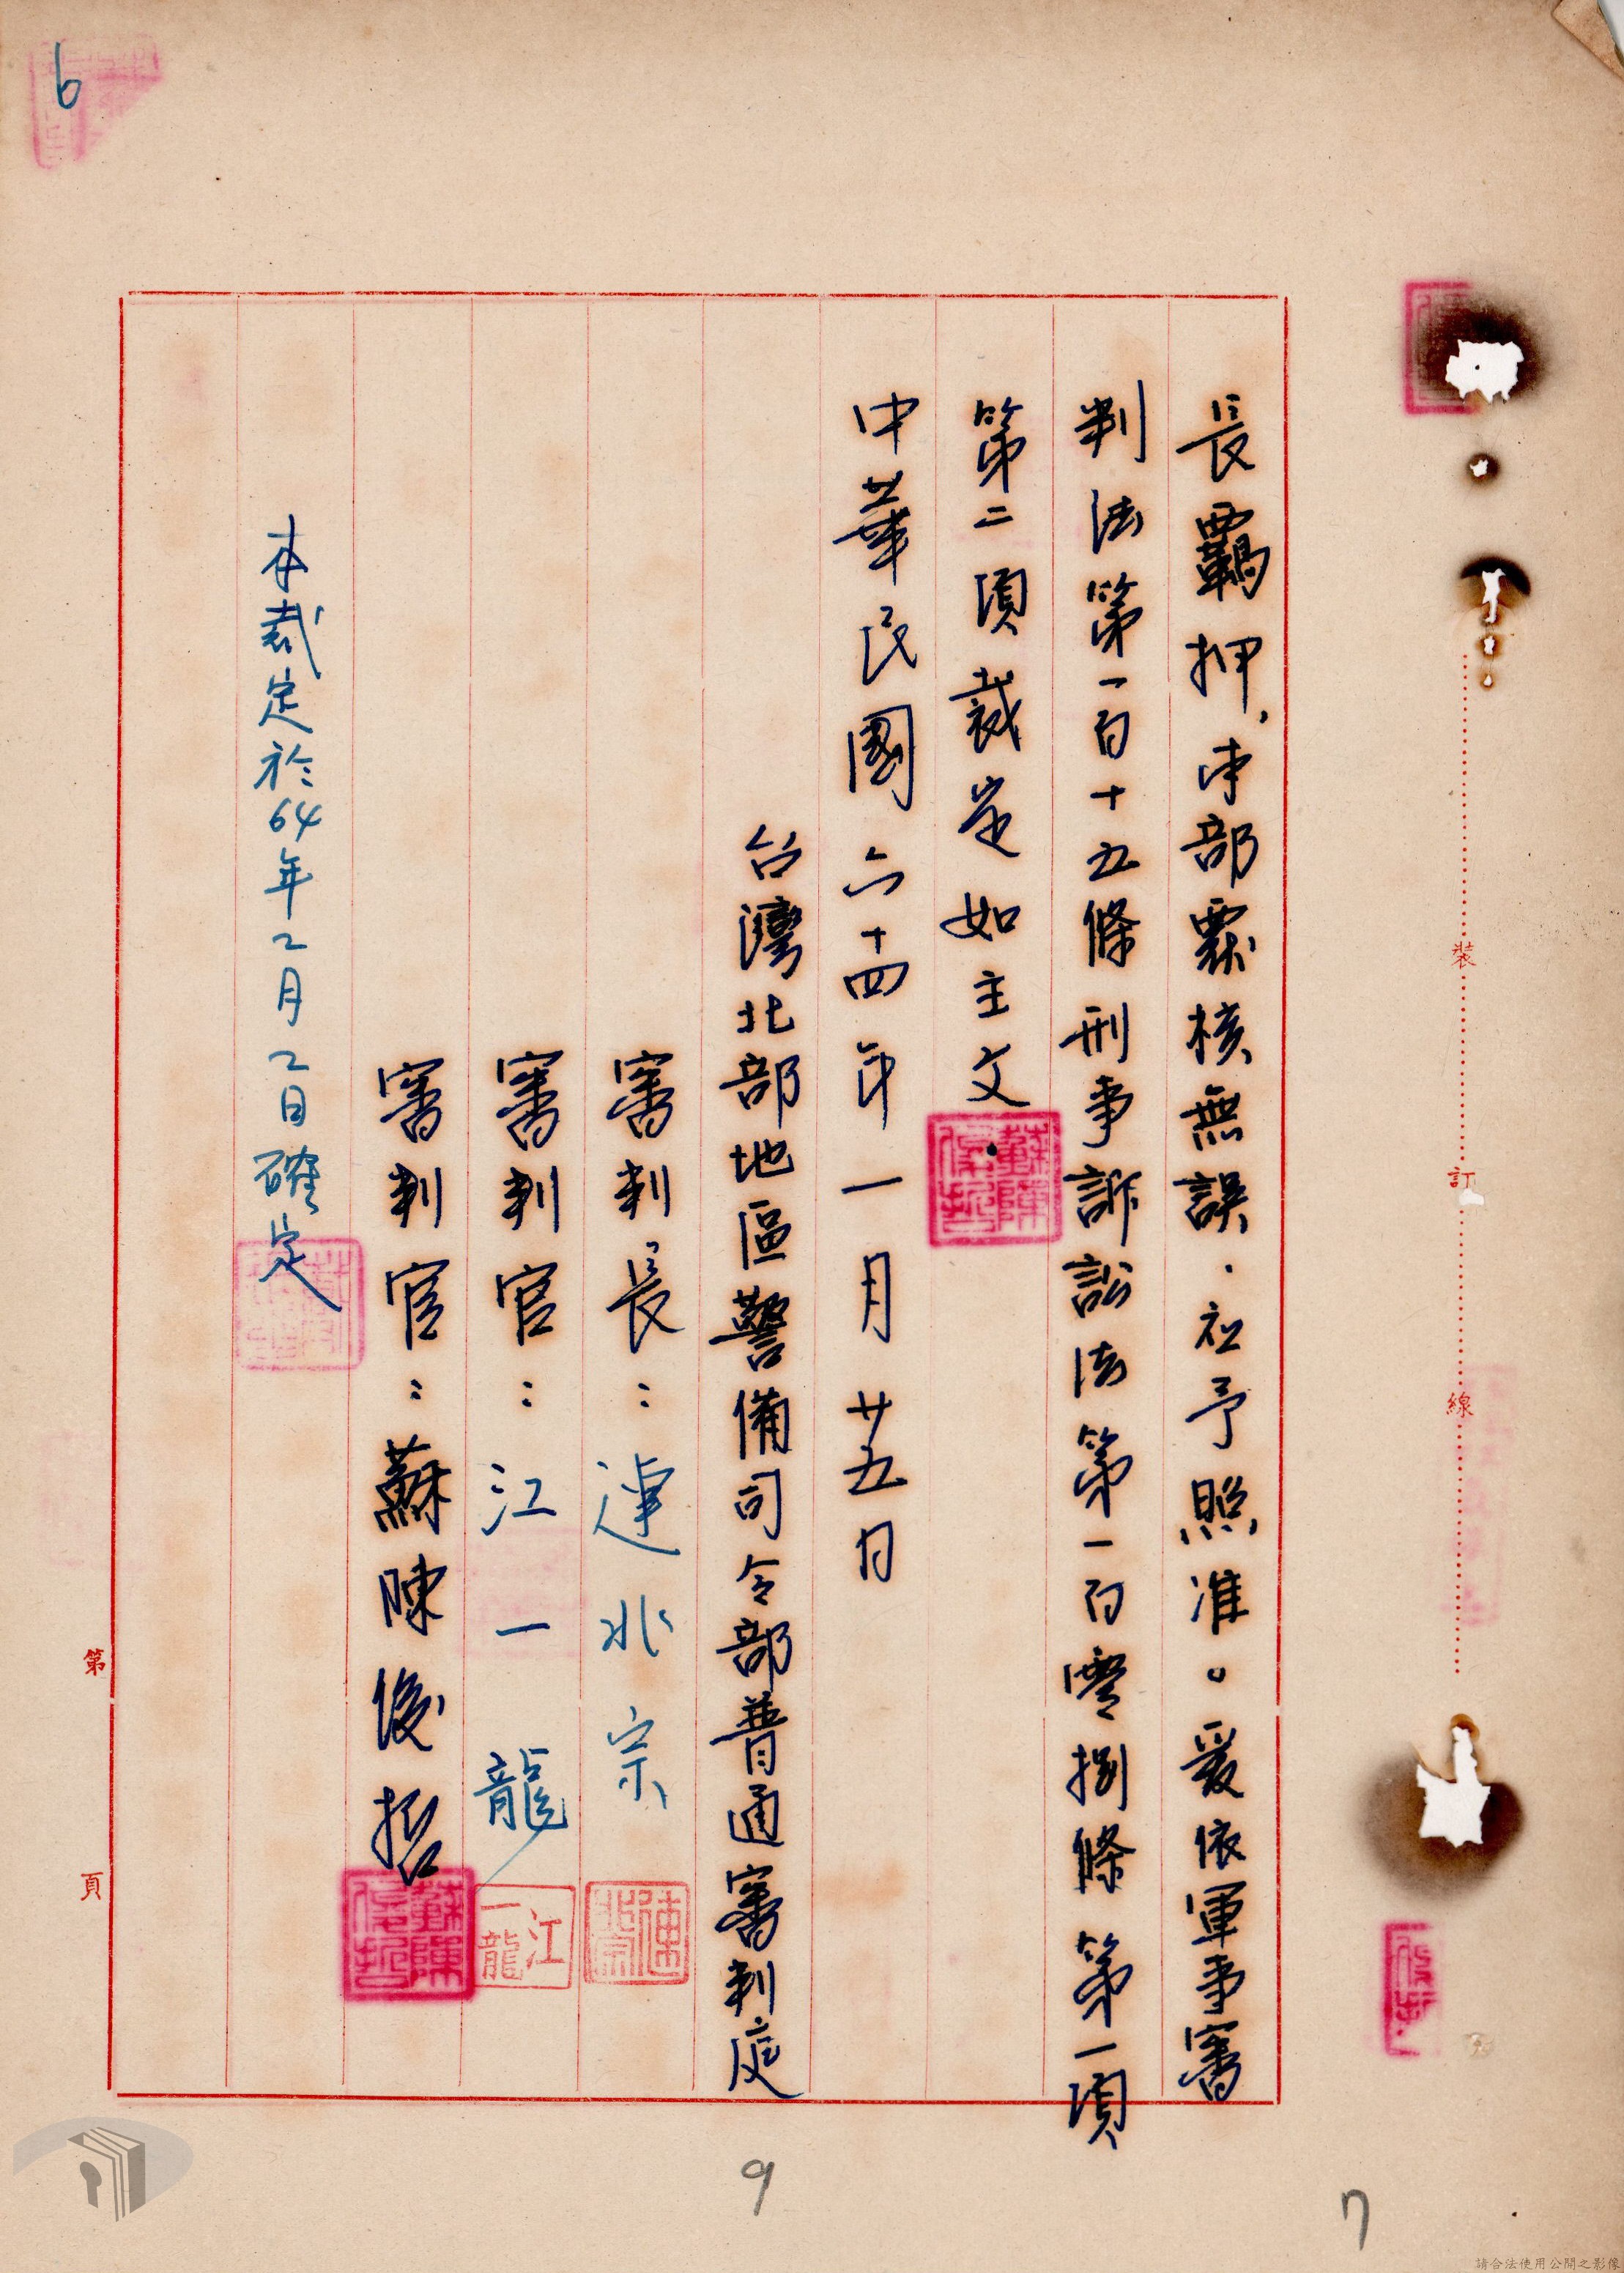 長羈押，本部覆核無誤．應予照准。爰依軍事審
判法第一百十五條刑事訴訟法第一百零捌條第一項
第二項裁定如主文
中華民國六十四年一月廿五日
台灣北部地區警備司令部普通審判庭
審判長：連兆宗
審判官：江一龍
審判官：蘇陳俊哲
本裁定於64年2月2日確定
江一龍
裝
訂
線
第
頁
6
9
7
請合法使用公開之影像